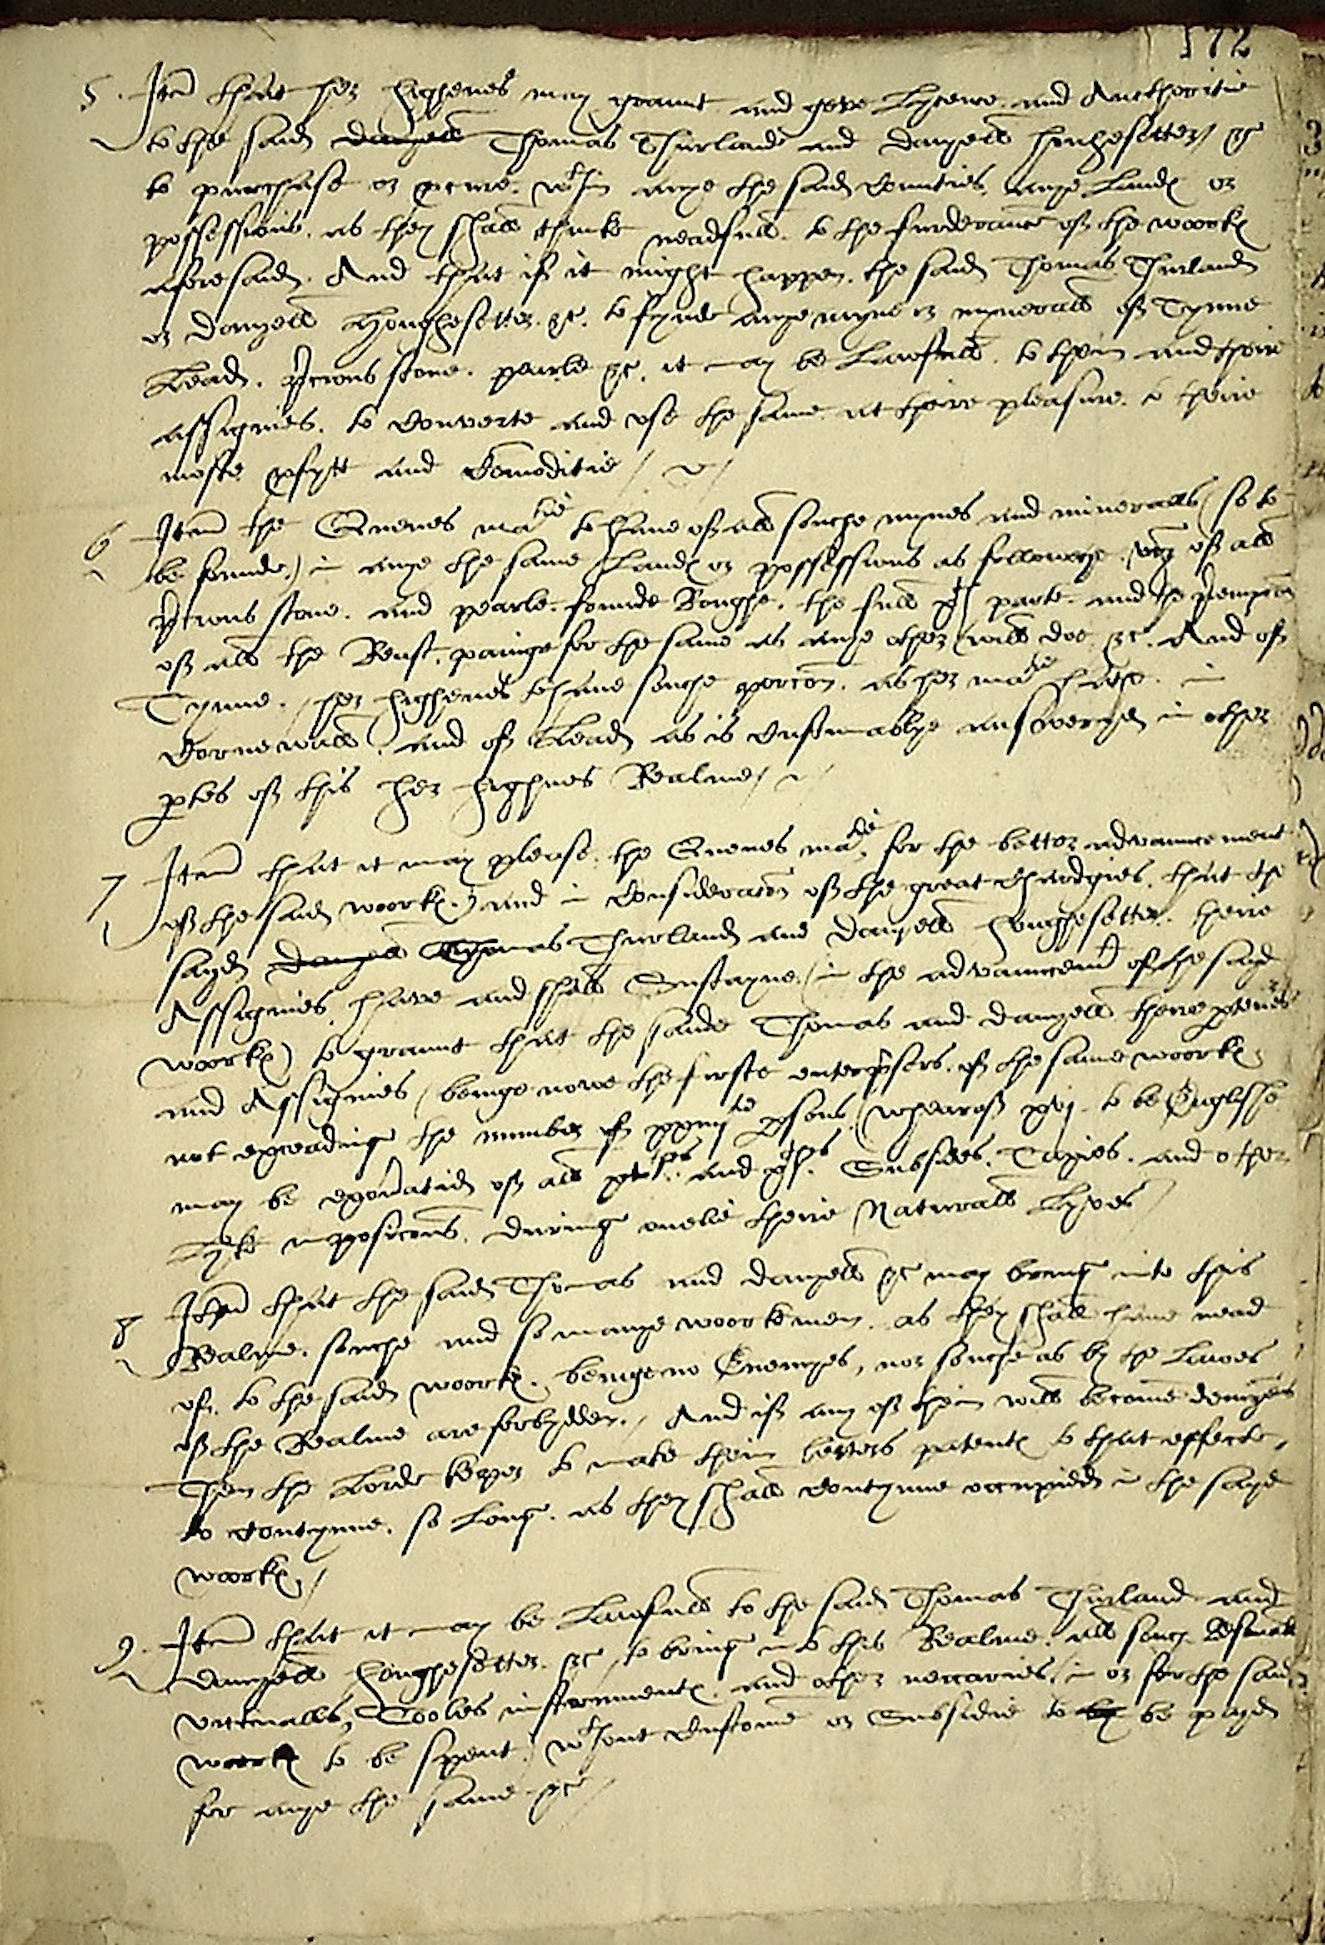 172
5. Itm that her highenes may graunt and geve Lycence and Aucthoritie
to the said danyell Thomas Thurlande and danyell houghesetter / &c
to purchase or procure wthin anye the said Counties anye Landes or
possessions, as they shall thinke neadfull to the furderance of the woorkes
aforesaid. And that if it might happen the said Thomas Thurland
or danyell Houghesetter &c. to fynde anye myne or mynerall of Tynne
Lead, pcious stone, pearle &c, it may be Lawfull to them and theire
assignies, to converte and use the same at theire pleasure, to theire
moste pfytt and Comodities /
6 Itm the Quenes matie to have of all souche mynes and mineralls (so to
be founde) in anye the same Landes or possessions as followeth, viz of all
pcious stone, and pearle founde Roughe, the full parte, and the pempcon
of all the Reast, painge for the same as anye other will doe &c. And of
Tynne, her highenes to have souche porcon, as her matie hathe in
Cornewall, and of Lead as is Customablye answeryd in other
ptes of this her highnes Realme /
7 Itm that it may please the Quenes matie, for the better advauncement
of the said woorkes, and in Consideracon of the great Chardgies, that the
sayd danyell Thomas Thurland and danyell houghesetter, theire
Assignies have and shall Susteyne, (in the advauncemt of the sayd
woorkes) to graunt that the saide Thomas and danyell theire pteners
and Assignies, beinge nowe the firste enterprisers of the same woorkes,
not exceadinge the number of xxiiij psons (whearof xvj to be Englisshe
may be exoneratid of all and Subsides, Taxies, and other
Lyke imposicons, during onelie theire Naturall Lyves /
8 Itm that the said Thomas and danyell &c may bring into this
Realme, souche and so manye woorkemen, as they shall have nead
of, to the said woorkes, beinge no Enemyes, nor souche as by the Lawes
of the Realme are forbydden, / And if any of them will become denizens
Then the Lorde keper to make them letters patentes to that effecte,
to contynue, so Long, as they shall contynue occupied in the sayd
woorkes /
9. Itm that it may be Lawfull to the said Thomas Thurland and
danyell houghesetter &c, to bring into this Realme, all souch
victualls, Tooles instrumentes, and other neccaries, in or for the said
woorkes to be spent, wthout Custome or Subsidie to by be payd
for anye the same &c /